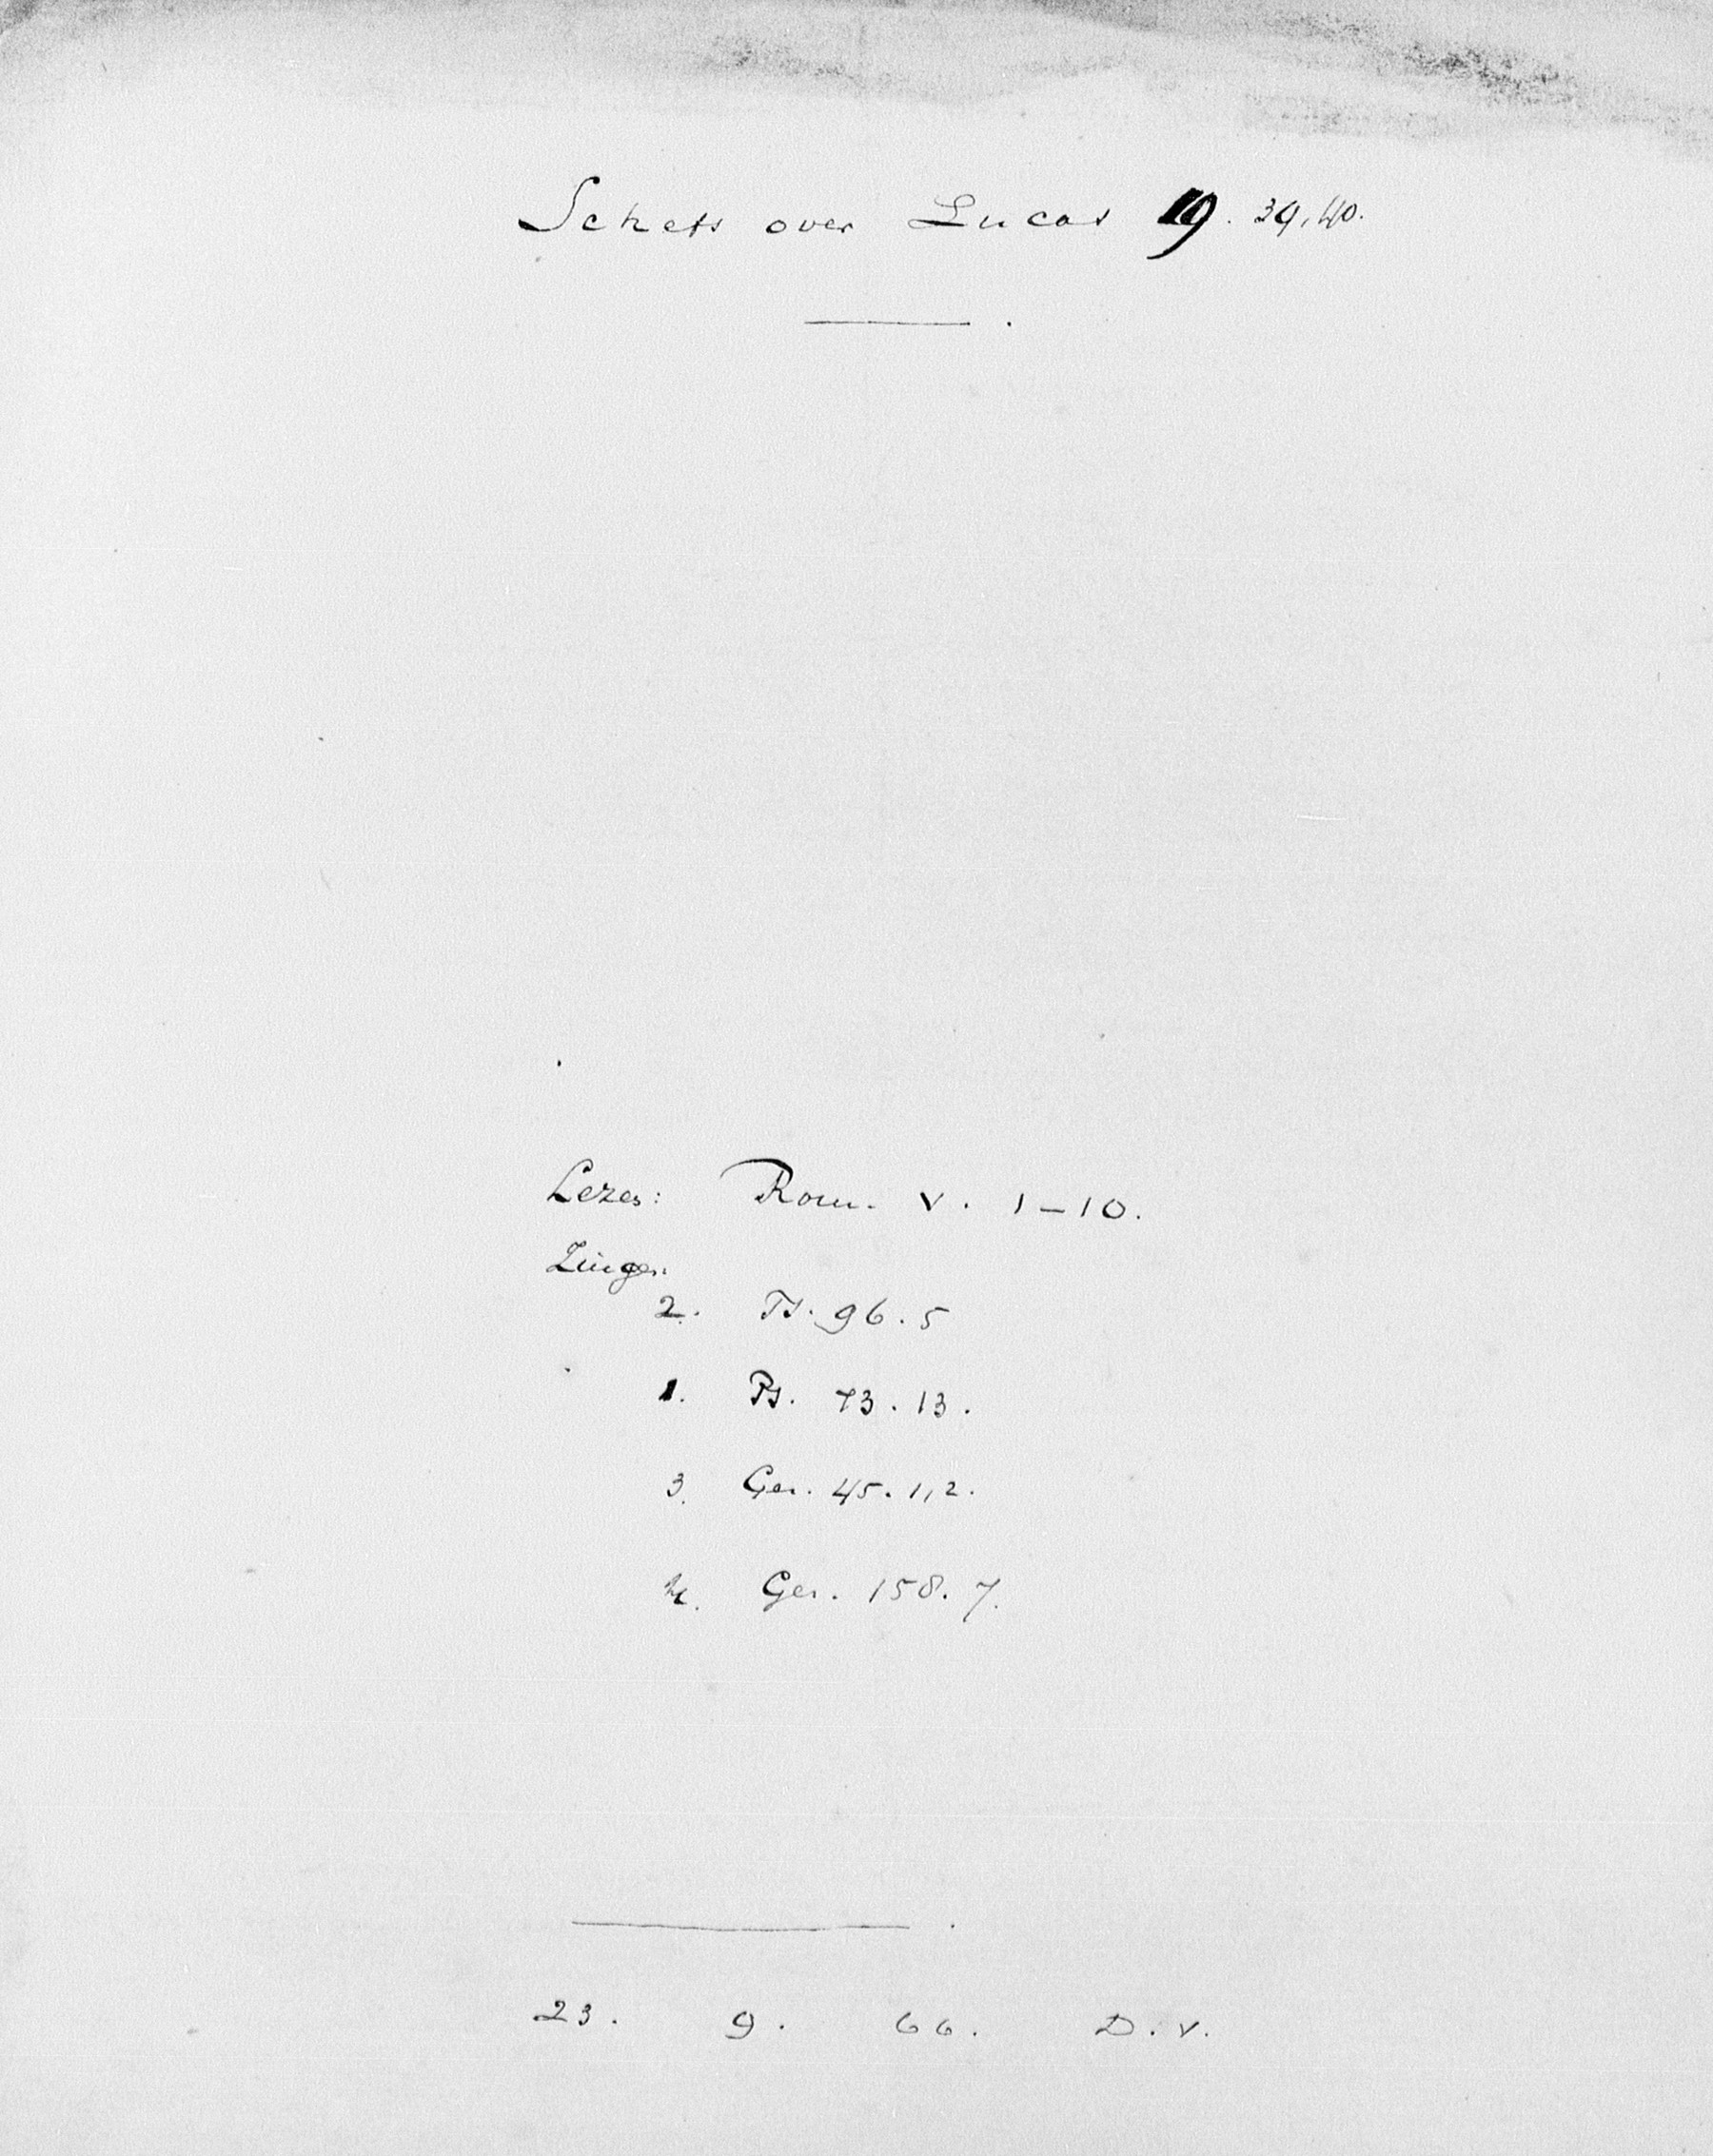 Schets over Lucas 19. 39,40.
Lezen: Rom. V. 1-10.
Zingen:
2. Ps. 96. 5
1. Ps. 73. 13.
3. Gez. 45. 1,2.
4. Gez. 158. 7.
23. 9. 66. D. V.